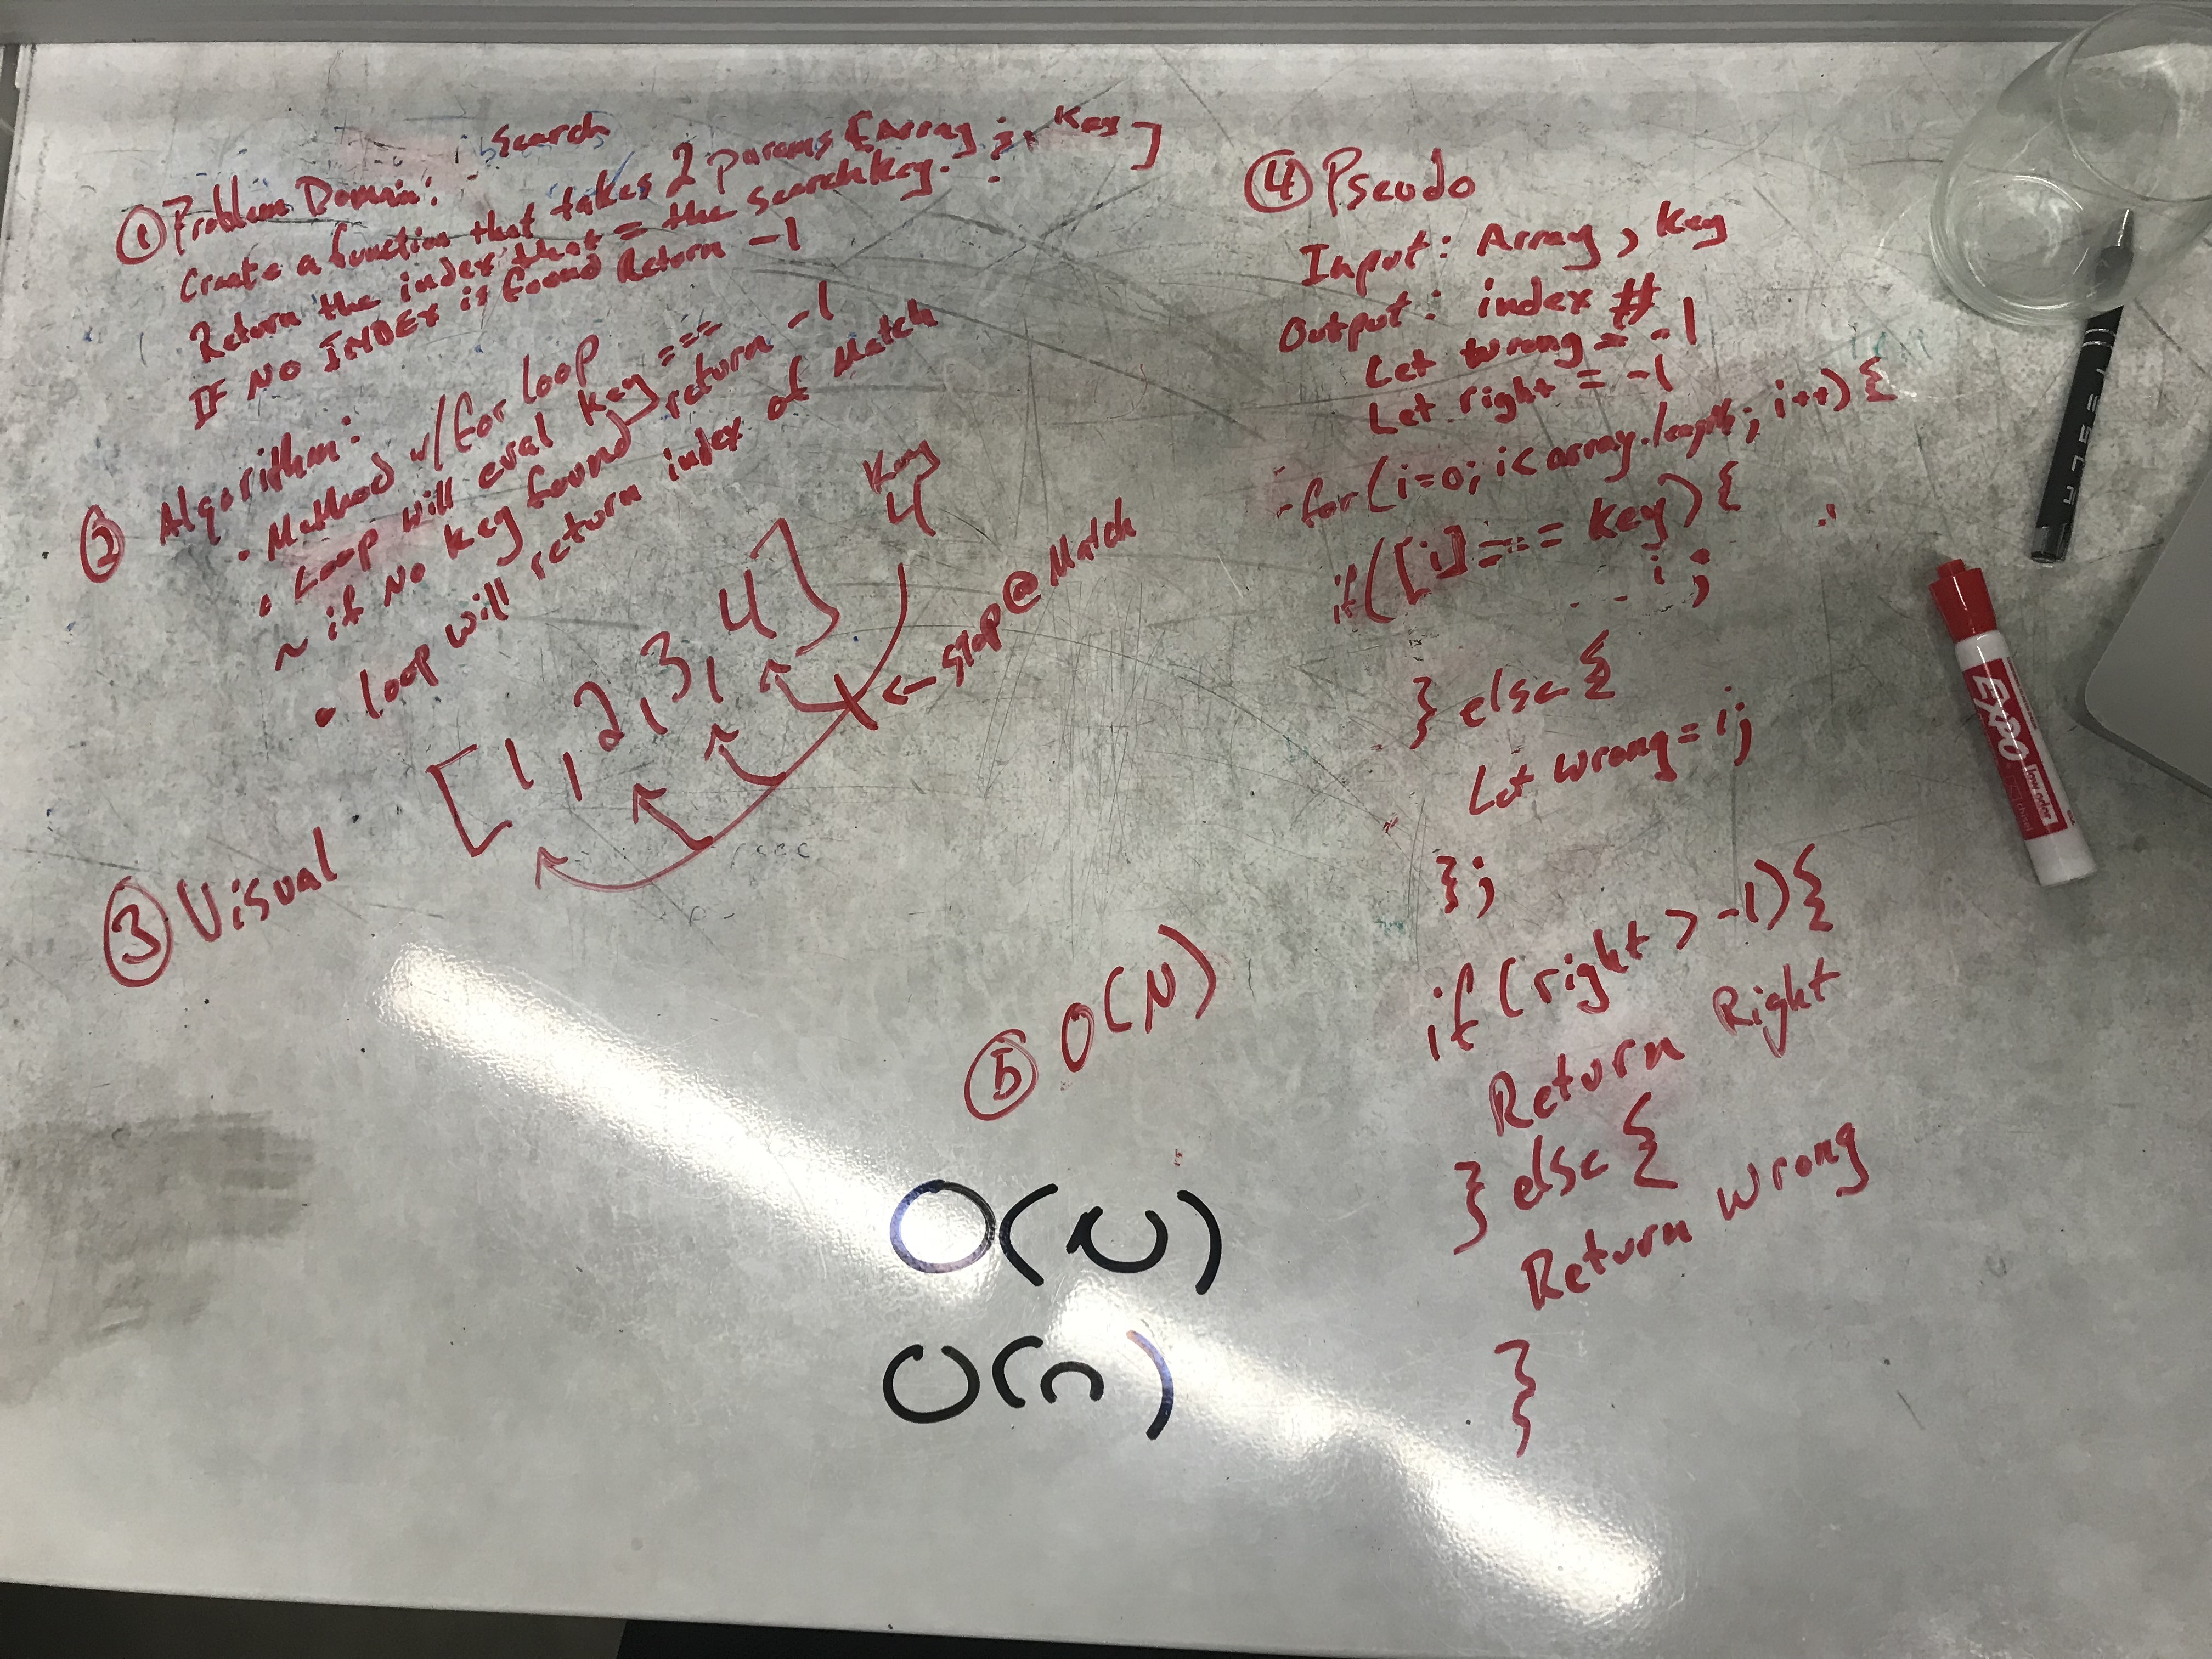 ① Problem Domain: Search
Create a function that takes 2 params [Array ; Key]
Return the index that = the searchkey.
IF NO INDEX is found Return -1
② Algorithm:
• Method w/for loop
• Loop will eval key ===
~ if NO key found return -1
• loop will return index of Match
Key
4
[1, 2, 3, 4]
← stop @ Match
③ Visual
④ Pseudo
Input: Array, Key
Output: index #
Let wrong = -1
Let right = -1
for(i=0; i<array.length; i++){
if([i]=== key){
i;
} else {
Let wrong = i;
};
if(right > -1){
Return Right
} else {
Return wrong
}
}
⑤ O(N)
O(N)
O(n)
EXPO
low odor
chisel